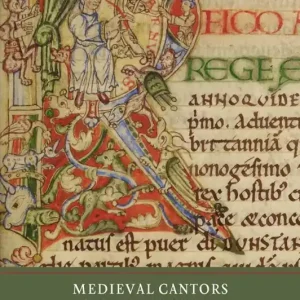 FICO
REGE
ANNO QVIDE
p̄mo. Aduent
brittannia qu
nonogesimo
rex hostib; c
pace & conc
natus est puer DUNSTAN
MEDIEVAL CANTORS